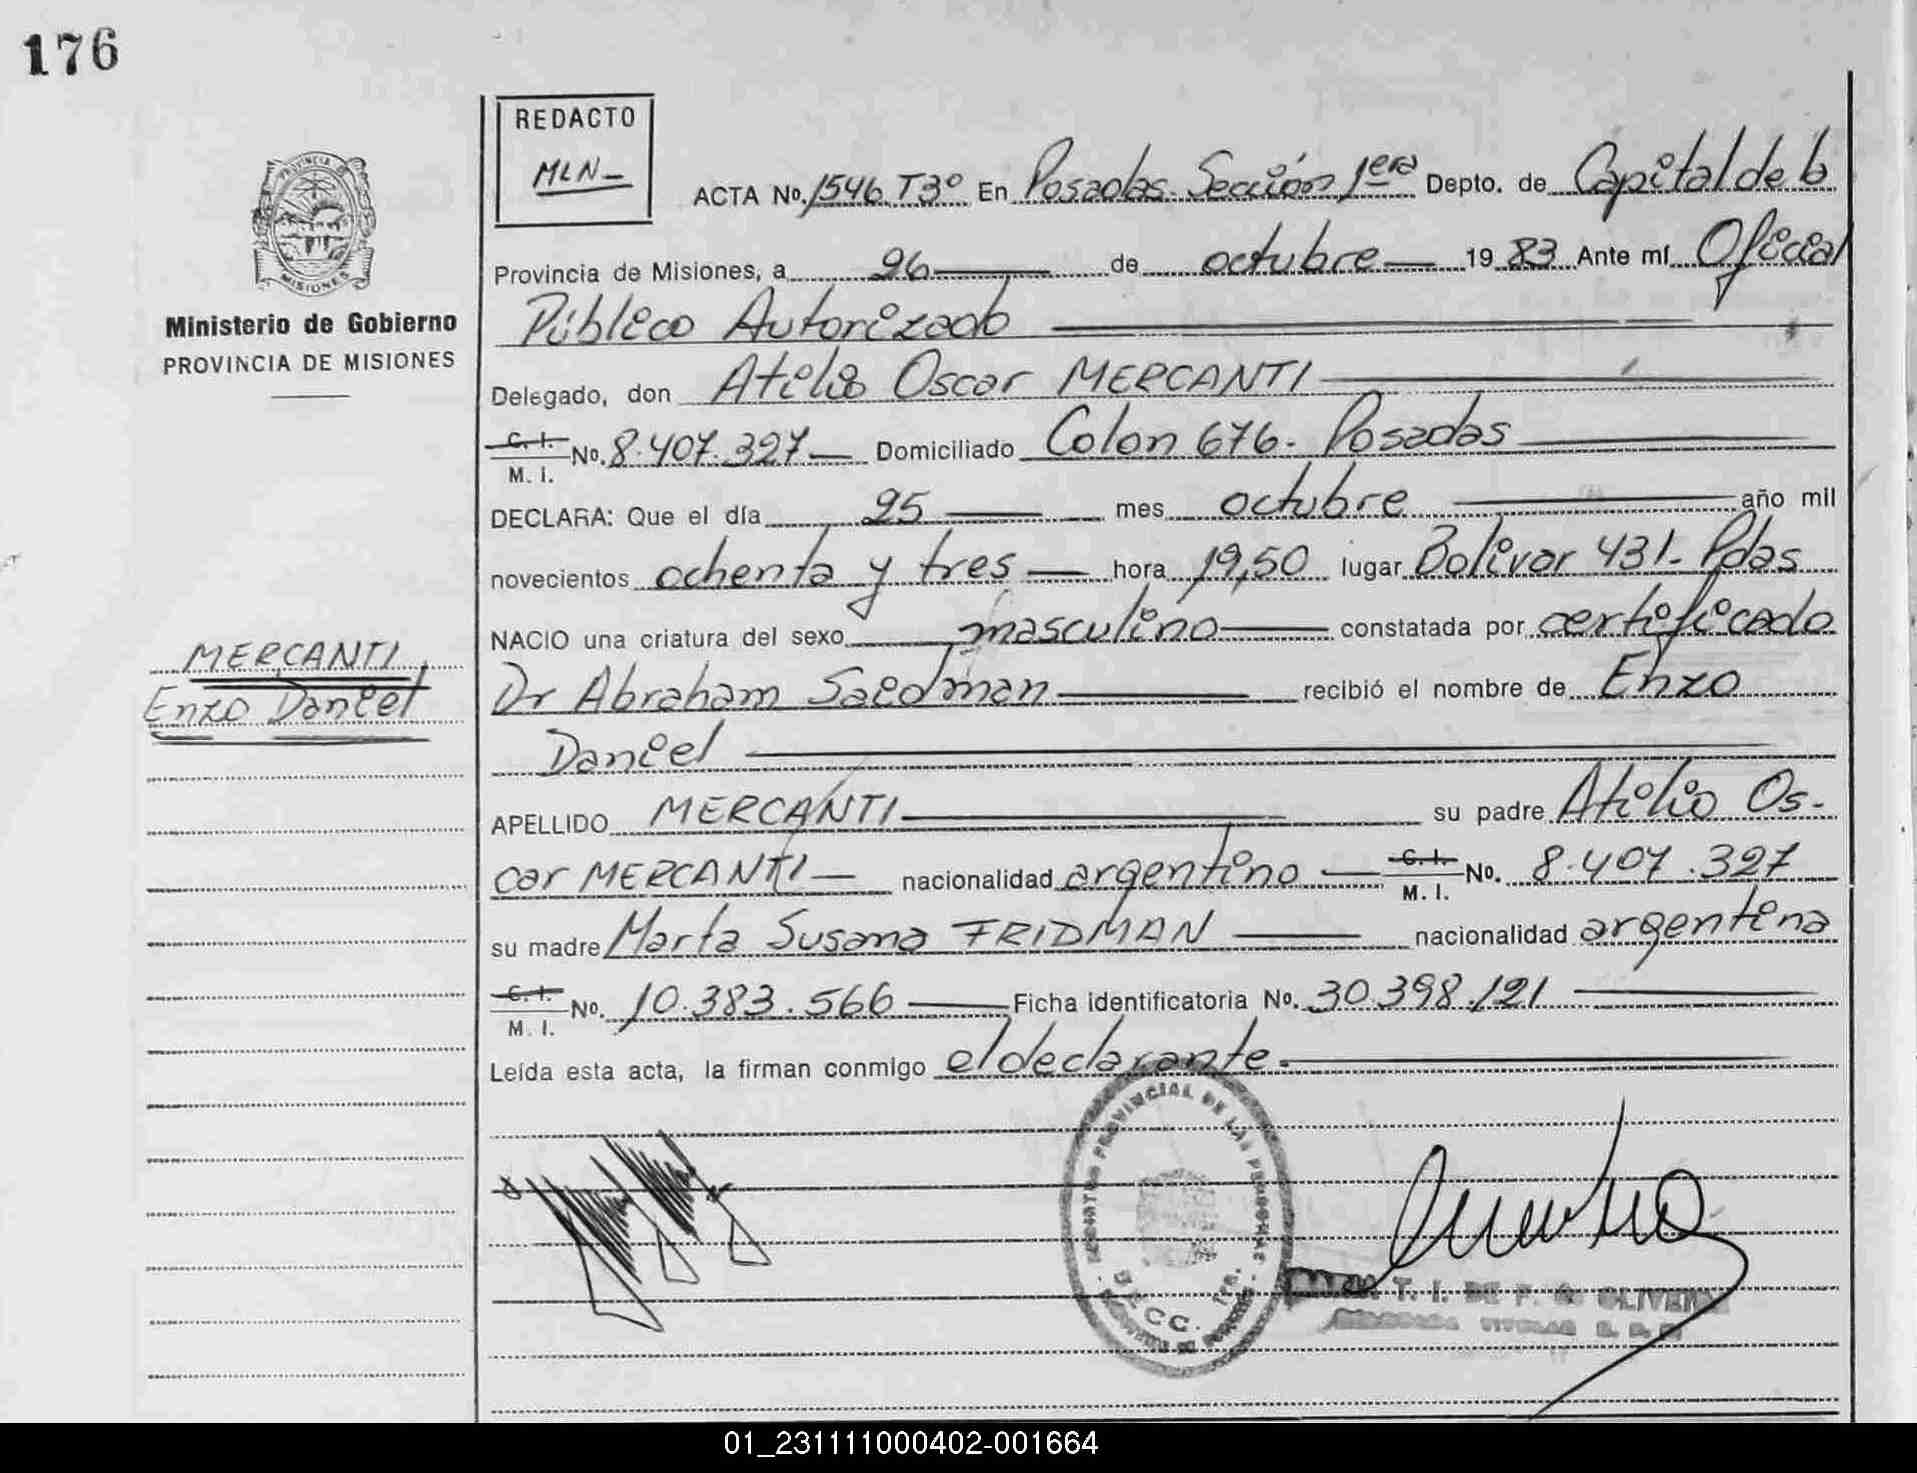 176
REDACTO
MLN-
ACTA No. 1546 T3º En Posadas Sección 1era Depto. de Capital de la
Provincia de Misiones, a 26 de octubre 19 83 Ante mí Oficial
Público Autorizado
Delegado, don Atilio Oscar MERCANTI
C. I. M. I. No. 8.407.327 Domiciliado Colon 676- Posadas
DECLARA: Que el día 25 mes octubre año mil
novecientos ochenta y tres hora 19,50 lugar Bolívar 431- Pdas
NACIO una criatura del sexo masculino constatada por certificado
Dr Abraham Saidman recibió el nombre de Enzo
Daniel
APELLIDO MERCANTI su padre Atilio Os-
car MERCANTI nacionalidad argentino C. I. M. I. No. 8.407.327
su madre Marta Susana FRIDMAN nacionalidad argentina
C. I. M. I. No. 10.383.566 Ficha identificatoria No. 30.398.121
Leída esta acta, la firman conmigo el declarante.
PROVINCIA DE
MISIONES
Ministerio de Gobierno
PROVINCIA DE MISIONES
MERCANTI
Enzo Daniel
PROVINCIAL DE LAS PERSONAS
T. I. DE F. OLIVERA
TITULAR
01_231111000402-001664